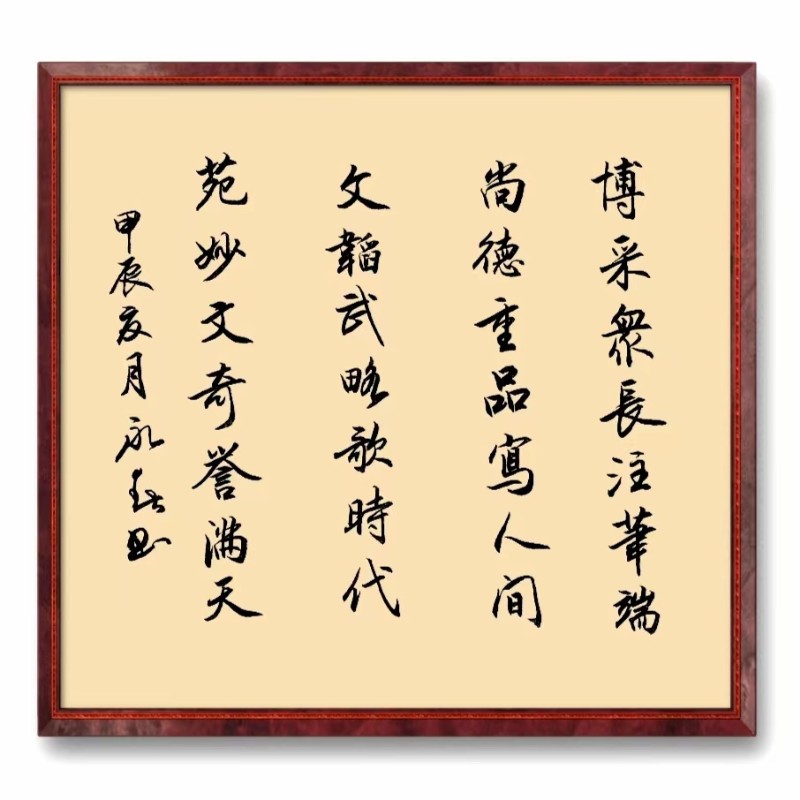 博采衆長注華端
尚德重品寫人间
文韜武略歌時代
苑妙文奇誉满天
甲辰亥月永